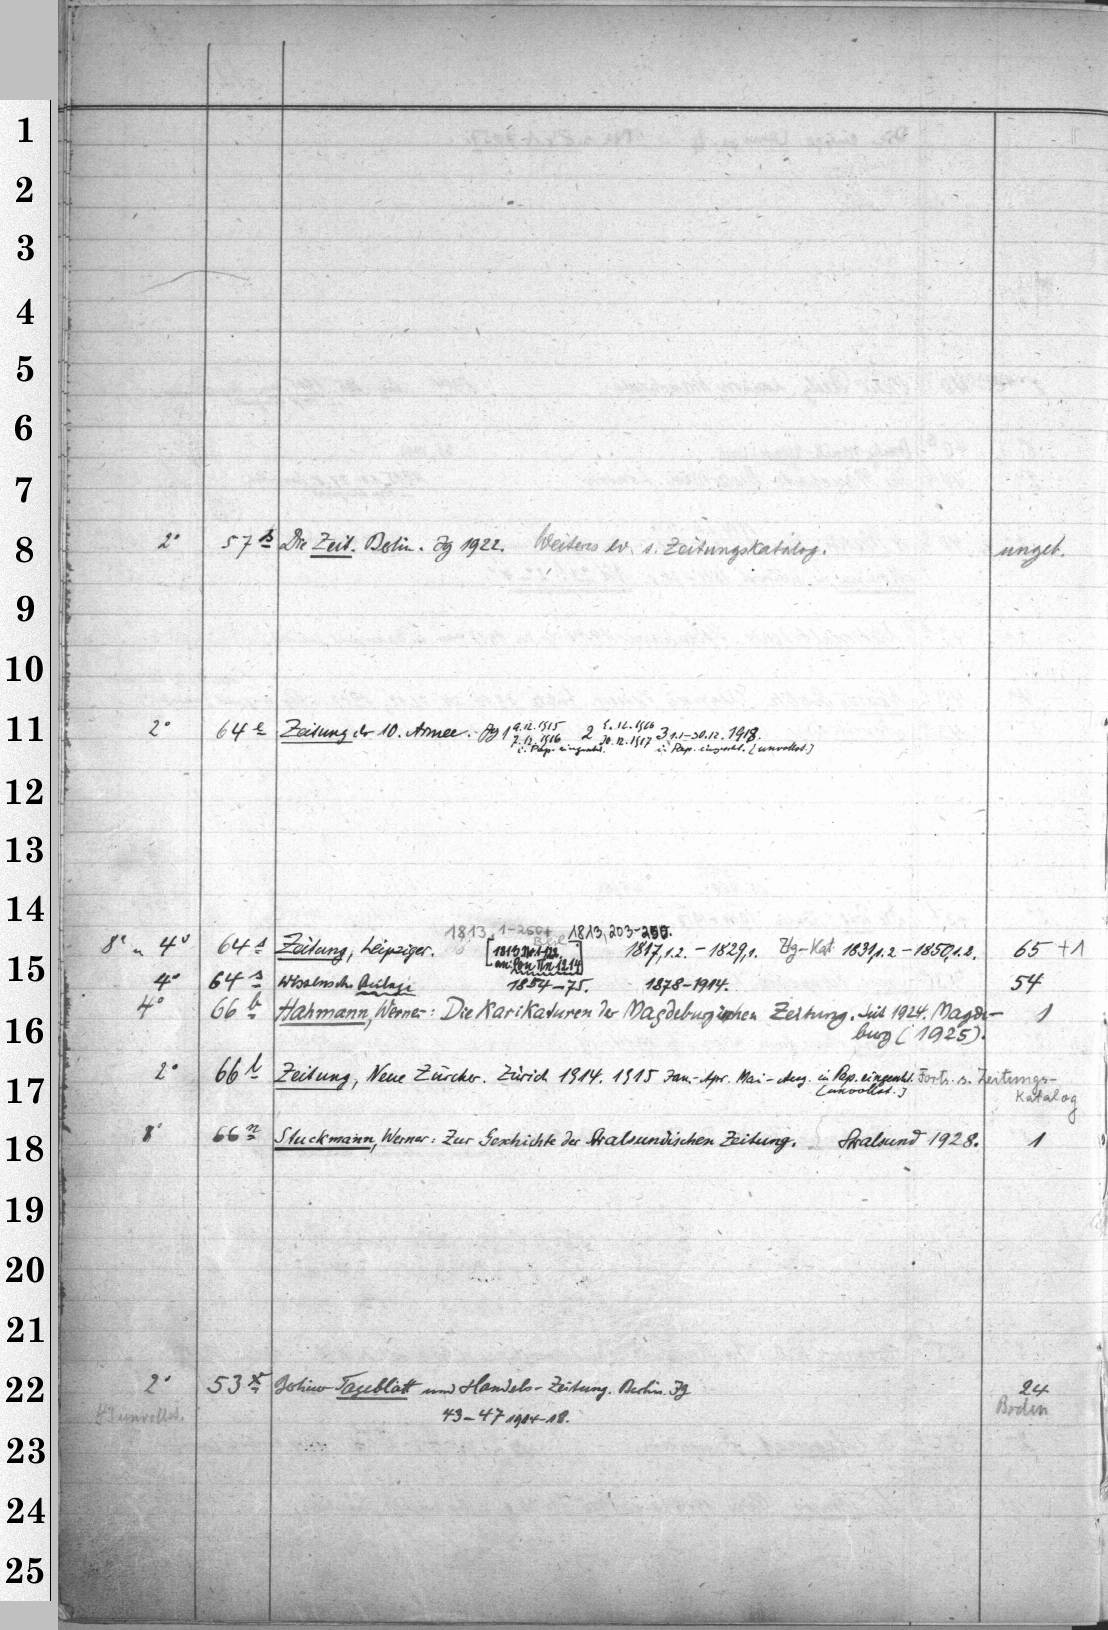 1
2
3
4
5
6
7
2° 57 Die Zeit. Berlin. Jg 1922. Weiteres s. Zeitungskatalog. ungeb.
8
9
10
2° 64 e Zeitung der 10. Armee. Jg 1 9.12.1915 2 1.12.1916 3 1.1-30.12.1918.
11
7.12.1916 30.12.1917 in Pap. eingeschl. [unvollst.]
12
13
14
1813, 1-250+ 1813, 203-250.
8° u. 4° 64 s Zeitung, Leipziger. 1817,1.2. - 1829,1. Ztg-Kat 1831,1.2 - 1850,1.2. 65 +1
15
4° 64 s Wissensch. Beilage 1854-75. 1878-1914. 54
4° 66 b Hahmann, Werner: Die Karikaturen der Magdeburgischen Zeitung. Seit 1924. Magde- 1
16
burg (1925).
2° 66 l Zeitung, Neue Zürcher. Zürich 1914. 1915 Jan.-Apr. Mai-Aug. in Pap. eingeschl. Forts. s. Zeitungs-
17
[unvollst.] Katalog
8° 66 n Stuckmann, Werner: Zur Geschichte der Stralsundischen Zeitung. Stralsund 1928. 1
18
19
20
21
2° 53 x Berliner Tageblatt und Handels-Zeitung. Berlin. Jg 24
22
unvollst. 43-47 1914-18. Boden
23
24
25